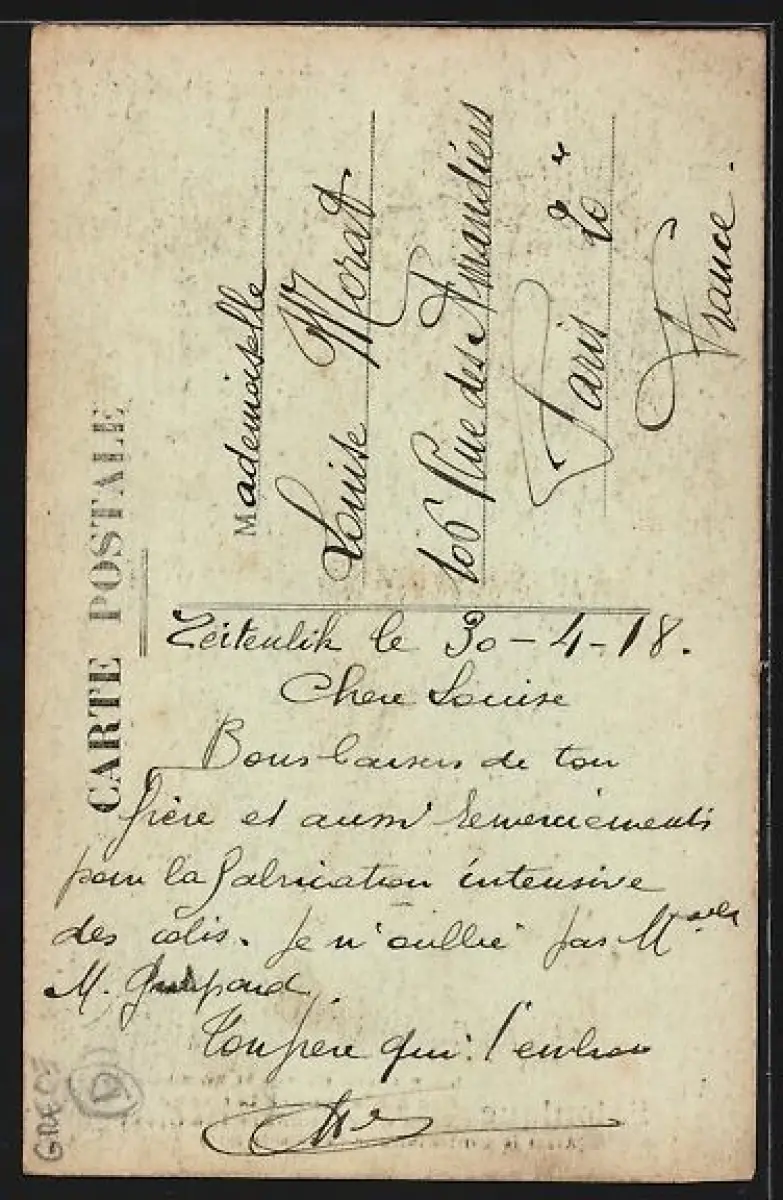 CARTE POSTALE
Mademoiselle
Louise Morat
106 Rue des Amandiers
Paris 20e
France.
Zeitenlik le 30-4-18.
Chere Louise
Bons baisers de ton
frère et aussi remerciements
pour la fabrication intensive
des colis. Je n'oublie pas
M.
Ton frère qui t'embrasse
GRECE